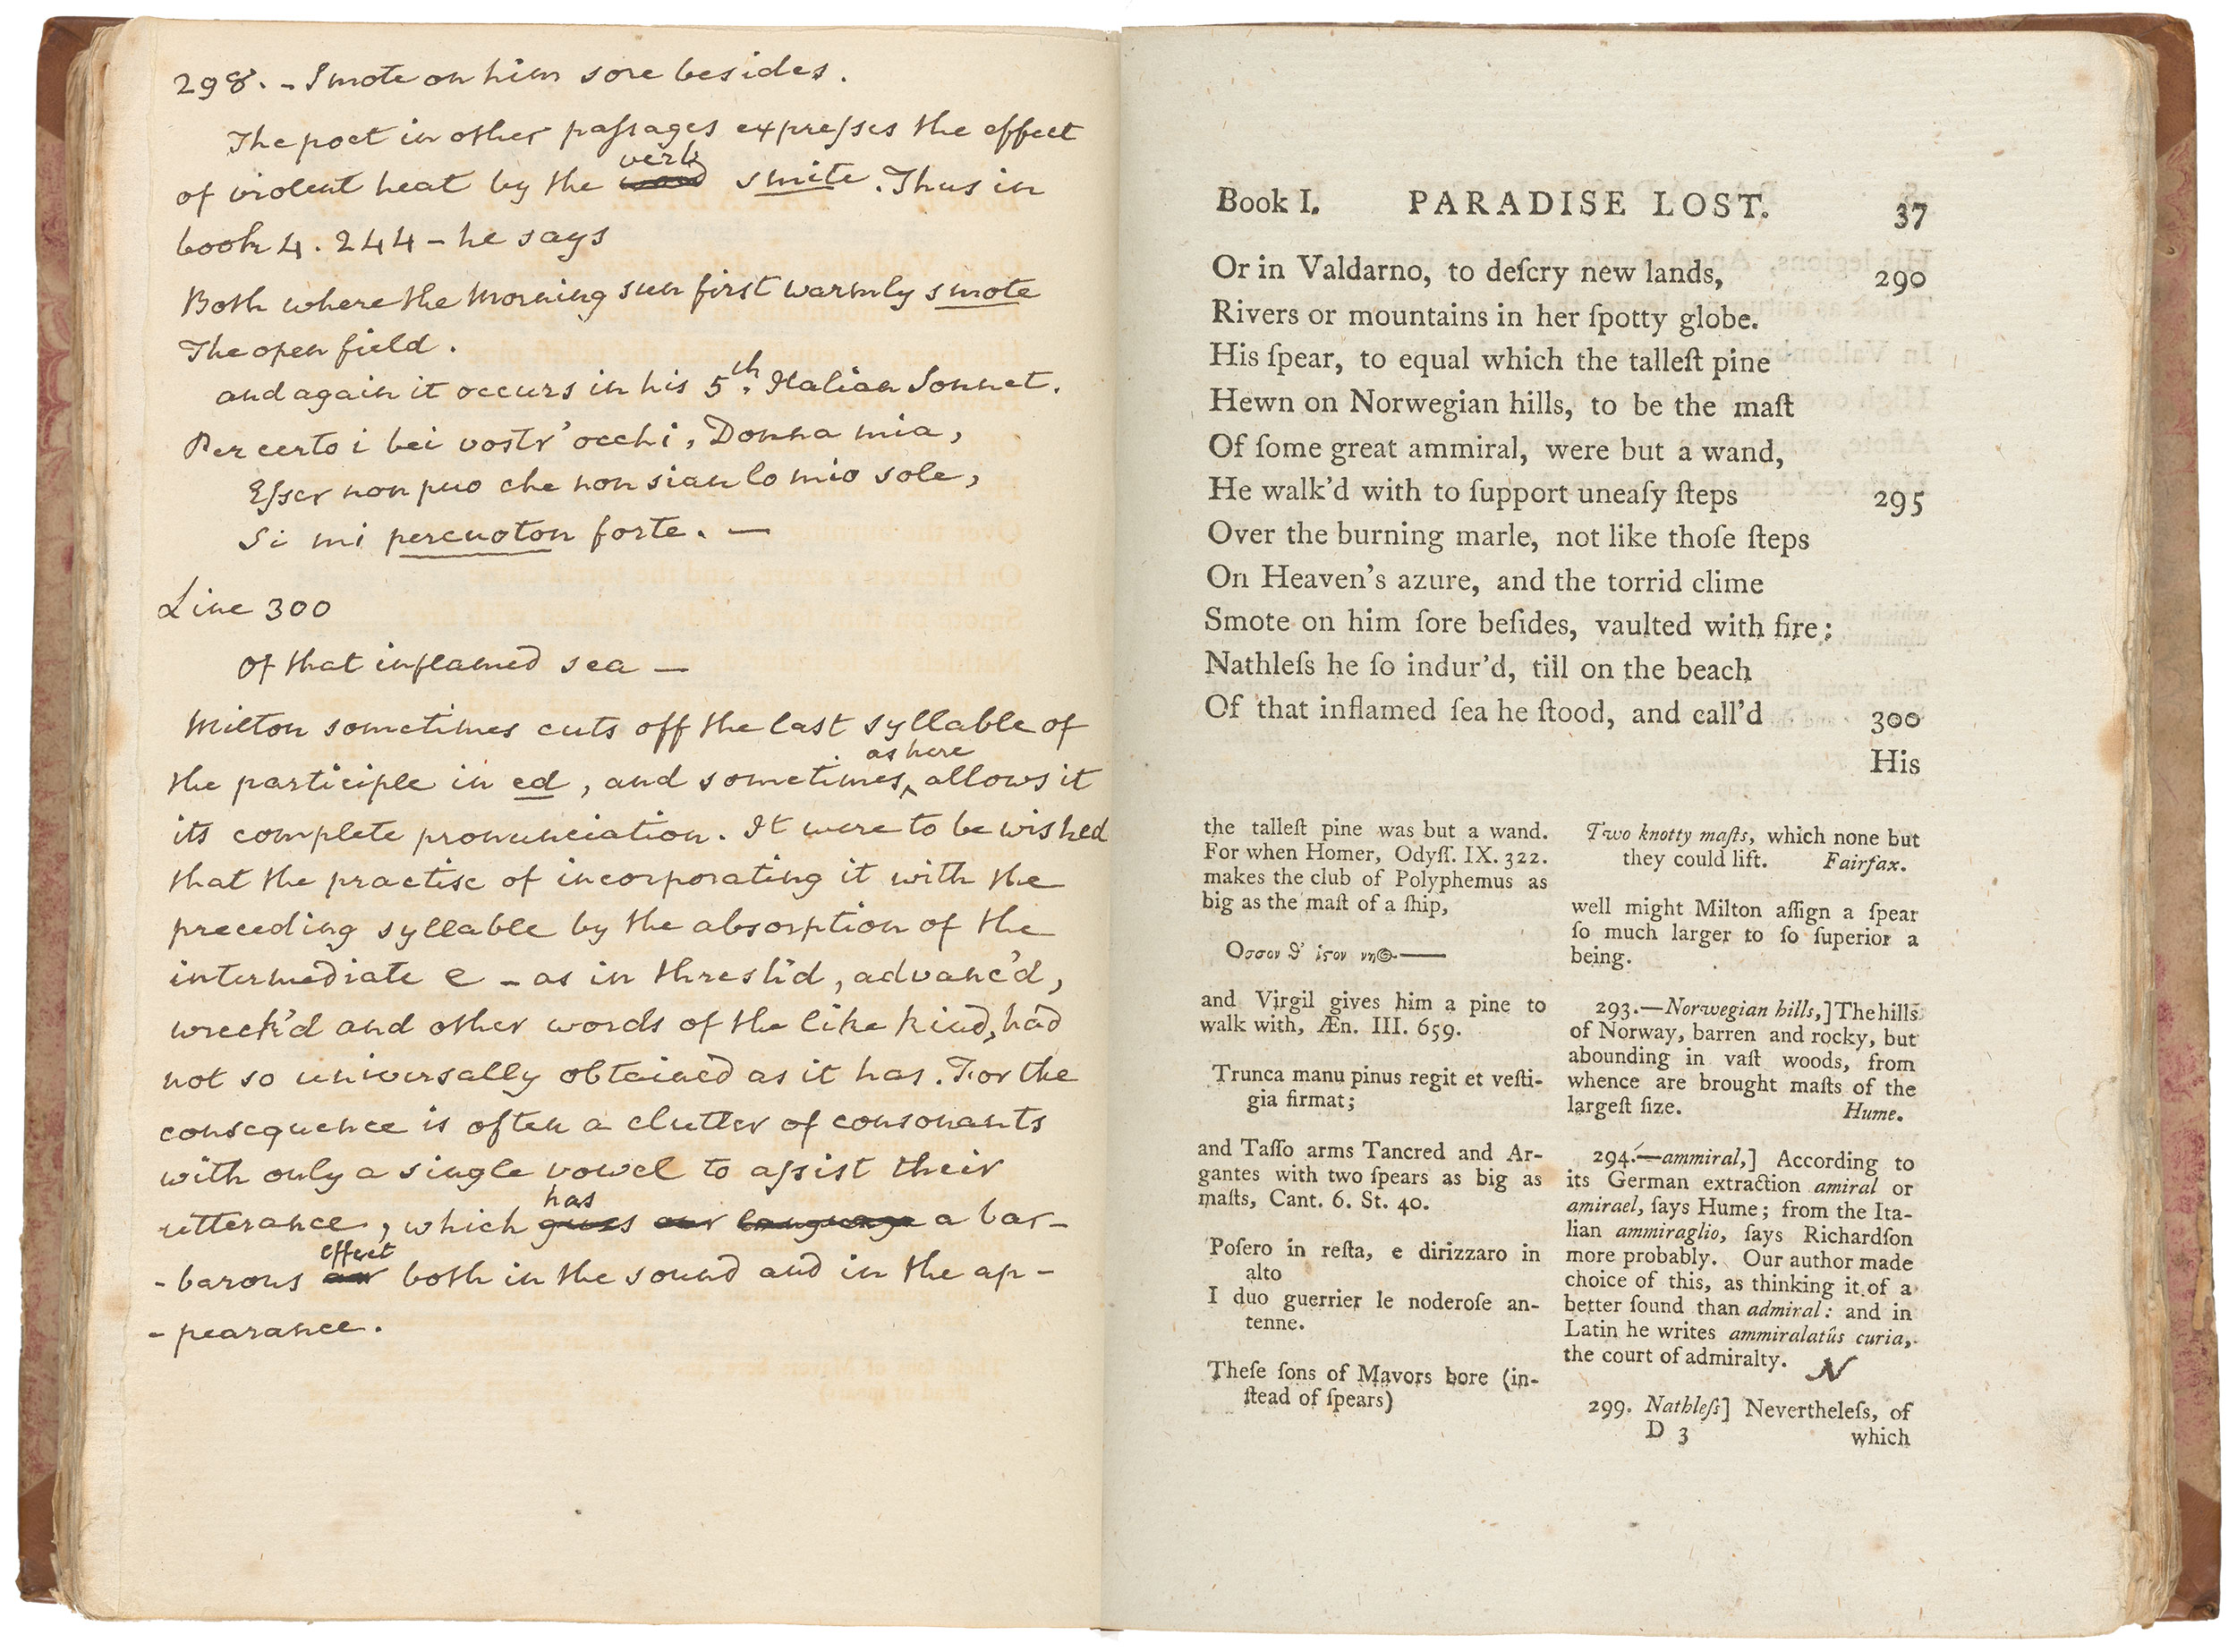 298. - Smote on him sore besides.
The poet in other paſsages expreſses the effect
verb
of violent heat by the word smite. Thus in
book 4. 244 - he says
Both where the Morning sun first warmly smote
The open field.
and again it occurs in his 5th. Italian Sonnet.
Per certo i bei vostr'occhi, Donna mia,
Eſser non puo che non sian lo mio sole,
Si mi percuoton forte. —
Line 300
Of that inflamed sea —
Milton sometimes cuts off the last syllable of
as here
the participle in ed, and sometimes, ^ allows it
its complete pronunciation. It were to be wished
that the practise of incorporating it with the
preceding syllable by the absorption of the
intermediate e - as in thresh'd, advanc'd,
wreck'd and other words of the like kind, had
not so universally obtained as it has. For the
consequence is often a clutter of consonants
with only a single vowel to aſsist their
has
utterance, which gives our language a bar-
effect
-barous air both in the sound and in the ap-
-pearance.
Book I. PARADISE LOST. 37
Or in Valdarno, to deſcry new lands, 290
Rivers or mountains in her ſpotty globe.
His ſpear, to equal which the talleſt pine
Hewn on Norwegian hills, to be the maſt
Of ſome great ammiral, were but a wand,
He walk'd with to ſupport uneaſy ſteps 295
Over the burning marle, not like thoſe ſteps
On Heaven's azure, and the torrid clime
Smote on him ſore beſides, vaulted with fire;
Nathleſs he ſo indur'd, till on the beach
Of that inflamed ſea he ſtood, and call'd 300
His
the talleſt pine was but a wand.
For when Homer, Odyſſ. IX. 322.
makes the club of Polyphemus as
big as the maſt of a ſhip,
Οσσον θ' ἱϛον νηος——
and Virgil gives him a pine to
walk with, Æn. III. 659.
Trunca manu pinus regit et veſti-
gia firmat;
and Taſſo arms Tancred and Ar-
gantes with two ſpears as big as
maſts, Cant. 6. St. 40.
Poſero in reſta, e dirizzaro in
alto
I duo guerrier le noderoſe an-
tenne.
Theſe ſons of Mavors bore (in-
ſtead of ſpears)
Two knotty maſts, which none but
they could lift. Fairfax.
well might Milton aſſign a ſpear
ſo much larger to ſo ſuperior a
being.
293.—Norwegian hills,] The hills
of Norway, barren and rocky, but
abounding in vaſt woods, from
whence are brought maſts of the
largeſt ſize. Hume.
294.—ammiral,] According to
its German extraction amiral or
amirael, ſays Hume; from the Ita-
lian ammiraglio, ſays Richardſon
more probably. Our author made
choice of this, as thinking it of a
better ſound than admiral: and in
Latin he writes ammiralatûs curia,
the court of admiralty. N
299. Nathleſs] Nevertheleſs, of
D 3 which